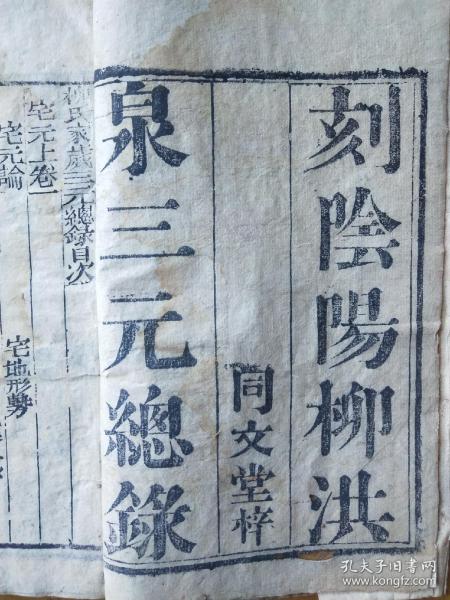 刻陰陽柳洪
泉三元總錄
同文堂梓
柳氏家藏三元總錄目次
宅元上卷一
宅元論
宅地形勢
孔夫子旧书网
www.kongfz.com